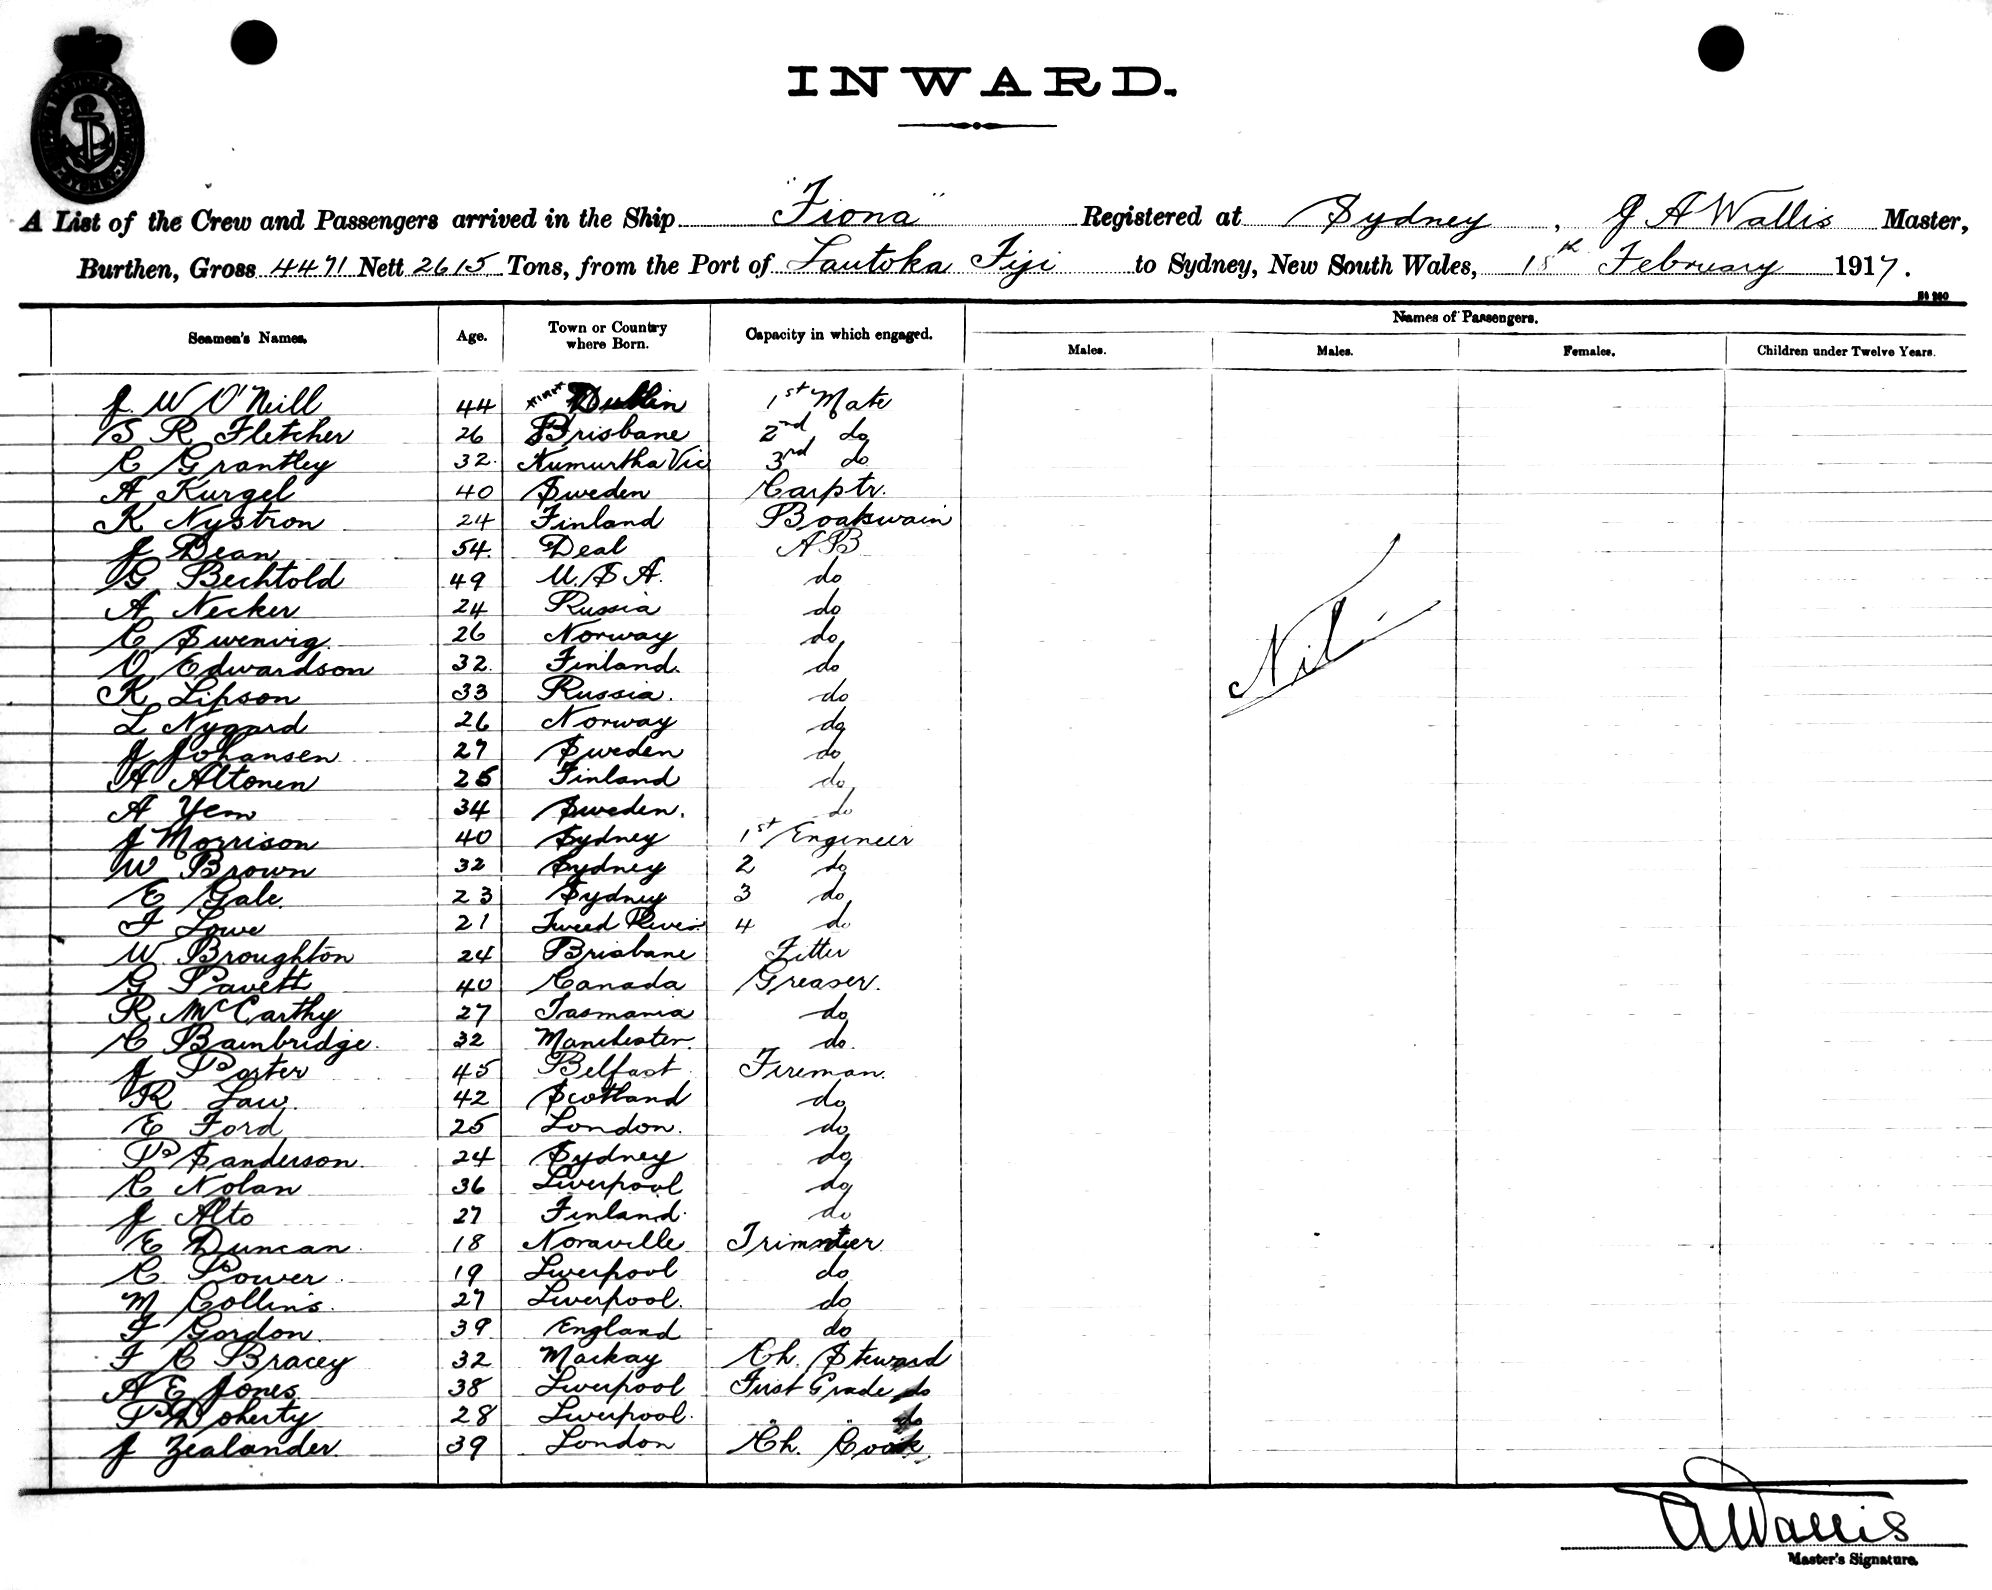 INWARD.
A List of the Crew and Passengers arrived in the Ship "Fiona" Registered at Sydney, J A Wallis Master,
Burthen, Gross 4471 Nett 2615 Tons, from the Port of Lautoka Fiji to Sydney, New South Wales, 18th February 1917.
Names of Passengers.
Seamen's Names. Age. Town or Country where Born. Capacity in which engaged. Males. Males. Females. Children under Twelve Years.
J. W O'Neill 44 Dublin 1st Mate
S R Fletcher 26 Brisbane 2nd do
C Grantley 32 Numurtha Vic 3rd do
A Kurgel 40 Sweden Carptr.
K Nystron 24 Finland Boatswain
J Dean 54 Deal AB
G Bechtold 49 U.S.A. do
A Necker 24 Russia do
C Swenvig 26 Norway do
O Edwardson 32 Finland. do
K Lipson 33 Russia. do
L Nygard 26 Norway do
J Johansen 27 Sweden do
A Altonen 25 Finland do
A Yem 34 Sweden. do
Nil
J Morrison 40 Sydney 1st Engineer
W Brown 32 Sydney 2 do
E Gale. 23 Sydney 3 do
F Lowe 21 Tweed River 4 do
W Broughton 24 Brisbane Fitter
G Pavett 40 Canada Greaser.
R McCarthy 27 Tasmania do
C Bambridge. 32 Manchester. do.
J Porter 45 Belfast Fireman.
R Law. 42 Scotland do
E Ford 25 London. do
P Sanderson. 24 Sydney do
C Nolan 36 Liverpool do
J Alto 27 Finland. do
E Duncan. 18 Noraville Trimmer
C Power. 19 Liverpool do
M Collins. 27 Liverpool. do
F Gordon. 39 England do
F C Bracey 32 Mackay Ch. Steward
A E Jones 38 Liverpool First Grade do
P Doherty 28 Liverpool. " " do
J Zealander. 39 London Ch. Cook
A Wallis
Master's Signature.